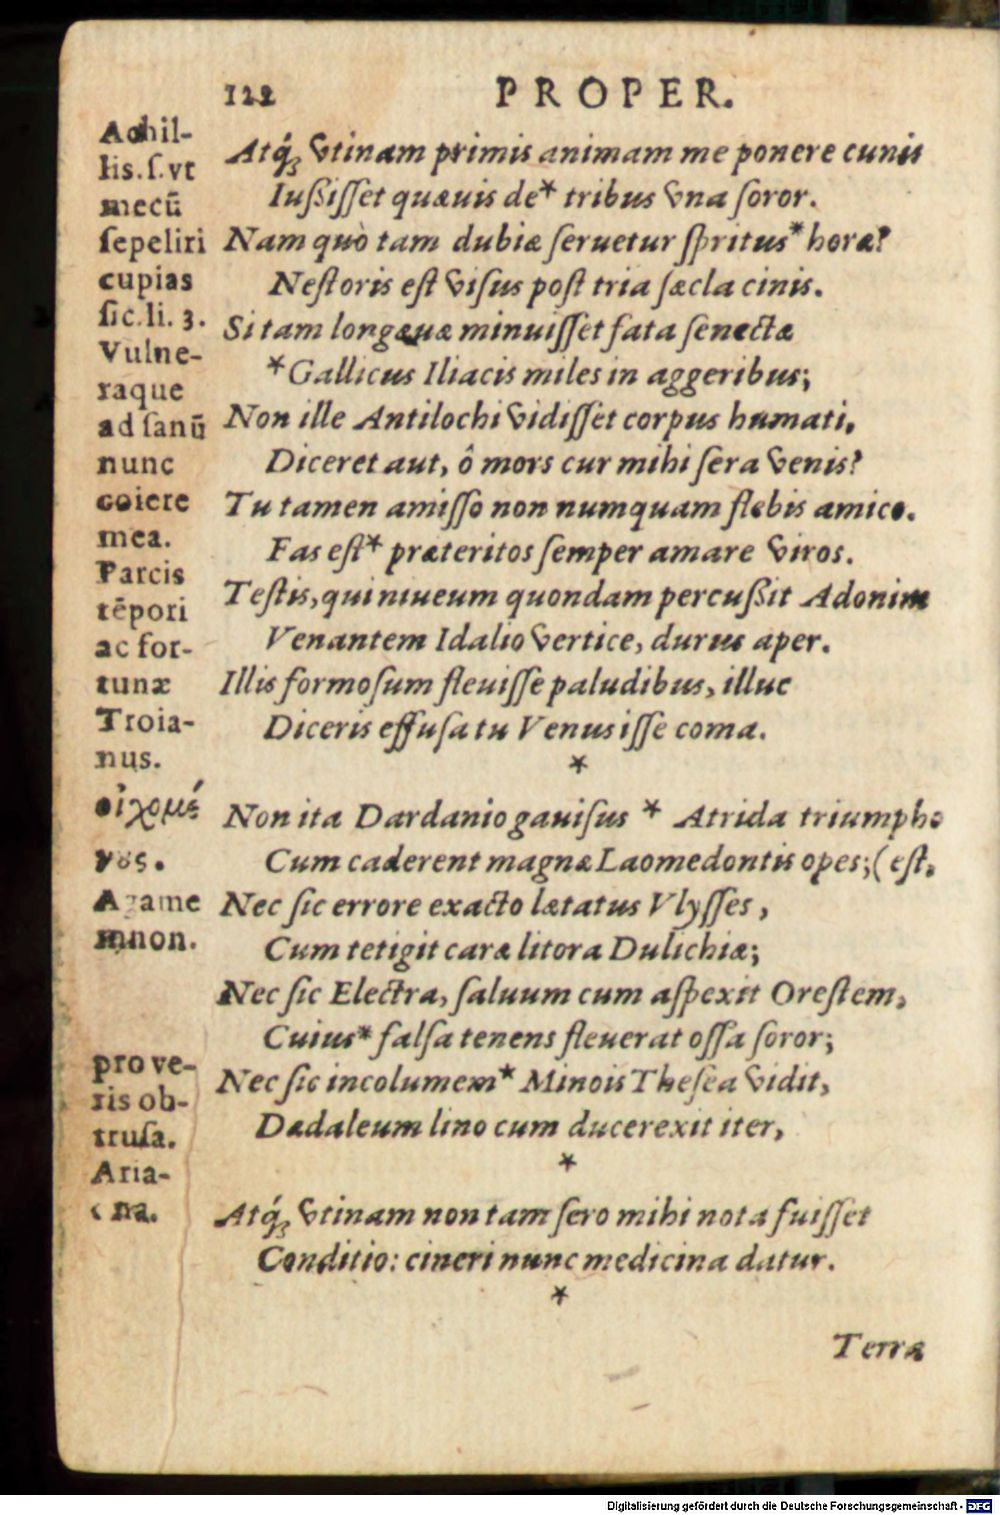 122
PROPER.
Achil-
lis. s. vt
mecū
sepeliri
cupias
sic. li. 3.
Vulne-
raque
ad sanū
nunc
coiere
mea.
Parcis
tēpori
ac for-
tunæ
Troia-
nus.
οἰχομέ
νος.
Agame
mnon.
pro ve-
ris ob-
trusa.
Aria-
na.
Atq́ꝫ vtinam primis animam me ponere cunis
Iußiſſet quæuis de* tribus vna ſoror.
Nam quò tam dubiæ ſeruetur ſpritus* horæ?
Neſtoris eſt viſus poſt tria ſæcla cinis.
Si tam longæuæ minuiſſet fata ſenectæ
*Gallicus Iliacis miles in aggeribus;
Non ille Antilochi vidiſſet corpus humati,
Diceret aut, ô mors cur mihi ſera venis?
Tu tamen amiſſo non numquam flebis amico.
Fas eſt* præteritos ſemper amare viros.
Teſtis, qui niueum quondam percußit Adonim
Venantem Idalio vertice, durus aper.
Illis formoſum fleuiſſe paludibus, illuc
Diceris effuſa tu Venus iſſe coma.
*
Non ita Dardanio gauiſus * Atrida triumpho
Cum caderent magnæ Laomedontis opes; (eſt,
Nec ſic errore exacto lætatus Vlyſſes,
Cum tetigit caræ litora Dulichiæ;
Nec ſic Electra, ſaluum cum aſpexit Oreſtem,
Cuius* falſa tenens fleuerat oſſa ſoror;
Nec ſic incolumem* Minois Theſea vidit,
Dædaleum lino cum ducerexit iter,
*
Atq́ꝫ vtinam non tam ſero mihi nota fuiſſet
Conditio: cineri nunc medicina datur.
*
Terræ
Digitalisierung gefördert durch die Deutsche Forschungsgemeinschaft - DFG